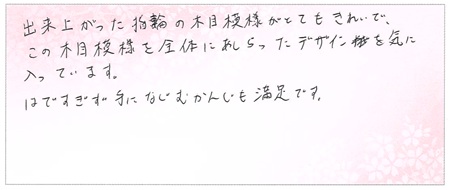 出来上がった指輪の木目模様がとてもきれいで、
この木目模様を全体にあしらったデザインを気に
入っています。
はですぎず手になじむかんじも満足です。